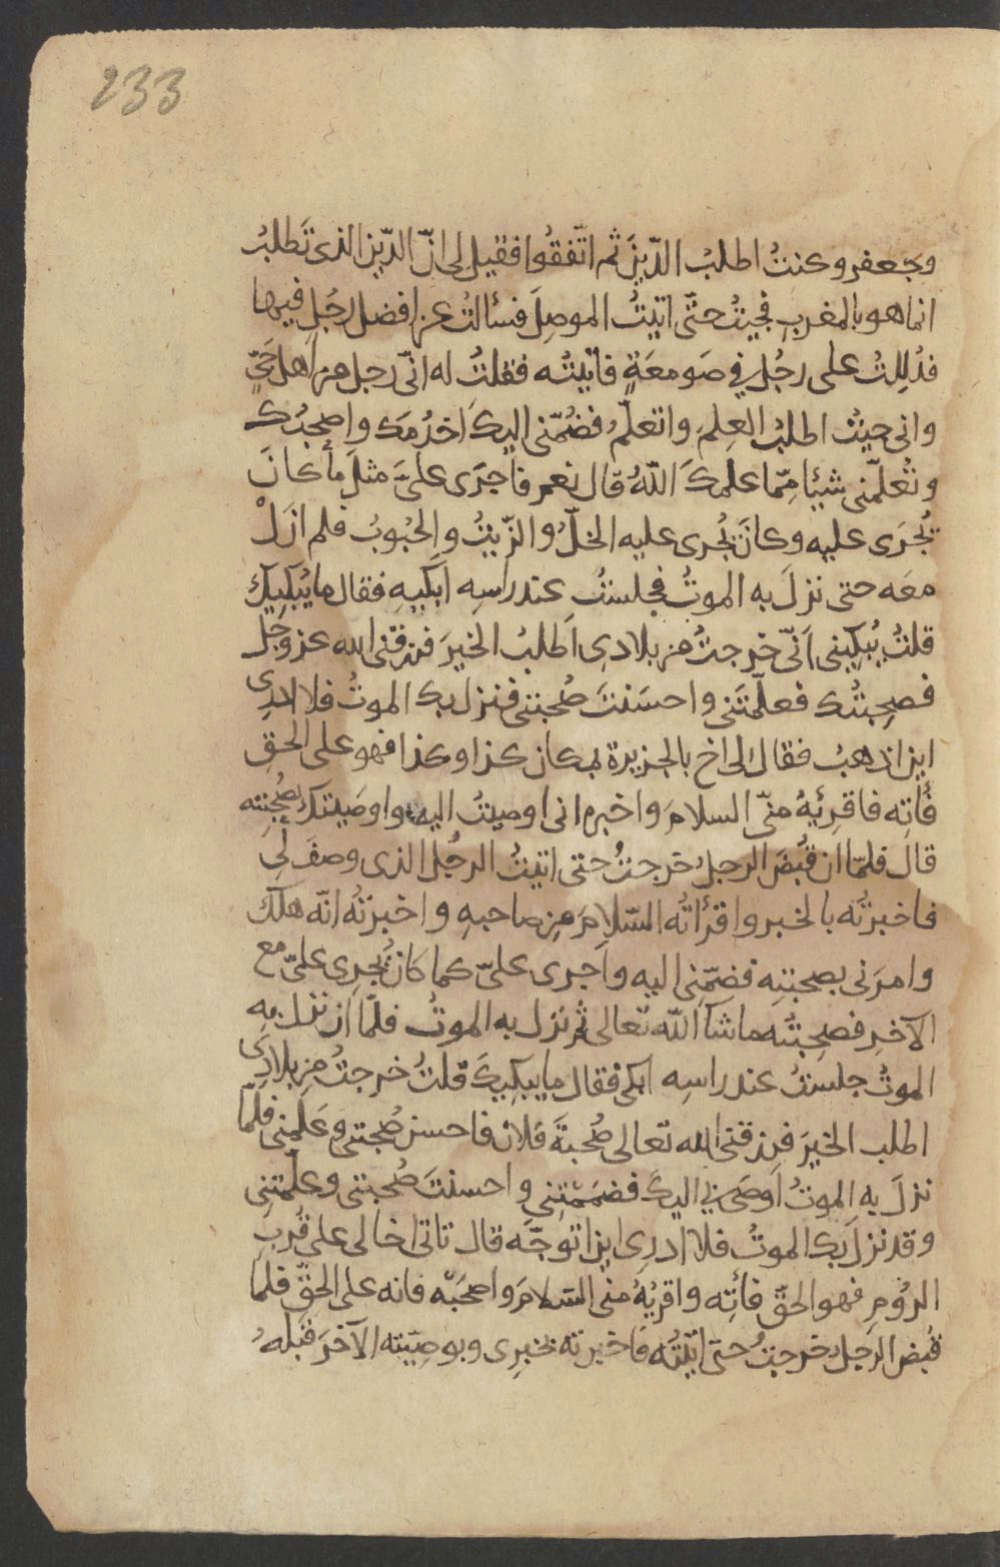 233
وجعفر وكنتُ اطلبُ الدّينَ ثم اتّفقُوا فقيل لى انّ الدّين الذى تَطلبُ
انما هو بالمغربِ فجيتُ حتّى اتيتُ الموصِلَ فسألتُ عن افضل رجُلٍ فيها
فدُلِلتُ على رجُلٍ في صَومعَةٍ فاتيتُه فقلتُ له انّى رجل من اهل جَىٍّ
وانى جيتُ اطلبُ العِلمَ واتعلّمُ فضُمّنى اليكَ اخدُمكَ واصحبُك
وتُعلّمنى شيئًا مِمّا علمكَ اللّهُ قال نعم فاجرَى علىَّ مثلَ ما كانَ
يُجرَى عليه وكانَ يُجرى عليه الخلُّ والزّيتُ والحُبوبُ فلم ازَلْ
معَه حتى نزلَ به الموتُ فجلستُ عند راسِه اَبكيهِ فقال ما يُبكيِك
قلتُ يُبكِينى اَنّى خرجتُ من بلادِى اَطلبُ الخيرَ فرزقنى الله عز وجل
فصحِبتُك فعلّمتَنى واحسَنتَ صُحبتى فنزل بك الموتُ فلا ادرِى
اين اذهبُ فقال الى اخ بالجزيرة بمكان كذا وكذا فهو على الحقِ
فَأتِه فاقرِئهُ منّى السلامَ واخبره انى اوصيتُ اليه واوصَيتك بصُحبَتِه
قال فلمّا ان قُبضَ الرجلُ خرجتُ حتى اتيتُ الرجُل الذى وصفَ لِى
فاخبرتُه بالخبر واقرَأتُه السّلامَ مِن صاحبهِ واخبرتُه انّه هلك
وامرَنى بصحبتِه فضمّنِى اليه واجرى علىّ كما كان يُجرى علىّ مع
الآخرِ فصحِبتُه ما شآ اللّه تعالى ثم نزل به الموتُ فلمّا ان نزل بِه
الموتُ جلستُ عند راسِه ابكى فقال ما يبكيكَ قلتُ خرجتُ من بلادِى
اطلب الخيرَ فرزقنى الله تعالى صُحبةَ فلان فاحسن صُحبتى وعَلّمنى فلمّا
نزلَ بهِ الموتُ اَوصَى بى اليكَ فضمَمْتنِى واحسنتَ صُحبتى وعلّمتنِى
وقد نزل بك الموتُ فلا ادرِى اين اتوجّه قال تاتى اخا لى على قُربِ
الرُومِ فهو الحقّ فأتِه واقرِئهُ منى السّلامَ واصحَبْه فانه على الحقّ فلمّا
قُبض الرجلُ خرجتُ حتّى اتيتُه فاخبرته بخبرِى وبوصيّته الآخرَ قبلهُ